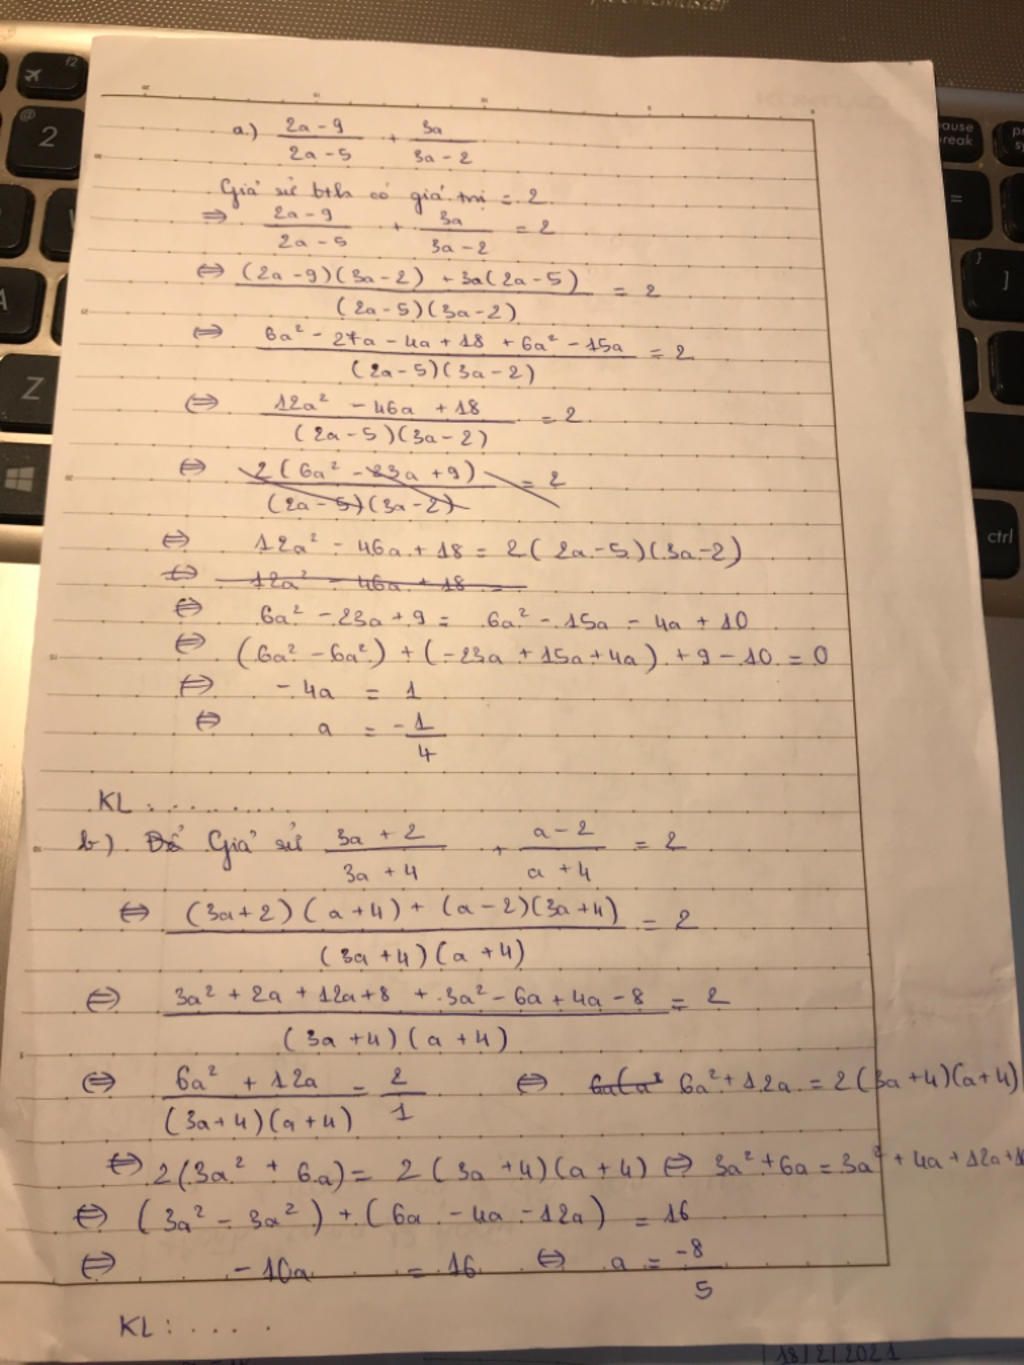 a.) (2a - 9)/(2a - 5) + 3a/(3a - 2)
Giả sử bth có giá trị = 2
⇒ (2a - 9)/(2a - 5) + 3a/(3a - 2) = 2
⇔ ((2a - 9)(3a - 2) + 3a(2a - 5))/((2a - 5)(3a - 2)) = 2
⇔ (6a² - 27a - 4a + 18 + 6a² - 15a)/((2a - 5)(3a - 2)) = 2
⇔ (12a² - 46a + 18)/((2a - 5)(3a - 2)) = 2
⇔ 2(6a² - 23a + 9)/((2a - 5)(3a - 2)) = 2
⇔ 12a² - 46a + 18 = 2(2a - 5)(3a - 2)
⇔ 12a² - 46a + 18 =
⇔ 6a² - 23a + 9 = 6a² - 15a - 4a + 10
⇔ (6a² - 6a²) + (-23a + 15a + 4a) + 9 - 10 = 0
⇔ - 4a = 1
⇔ a = -1/4
KL : ..........
b) Để Giả sử (3a + 2)/(3a + 4) + (a - 2)/(a + 4) = 2
⇔ ((3a + 2)(a + 4) + (a - 2)(3a + 4))/((3a + 4)(a + 4)) = 2
⇔ (3a² + 2a + 12a + 8 + 3a² - 6a + 4a - 8)/((3a + 4)(a + 4)) = 2
⇔ (6a² + 12a)/((3a + 4)(a + 4)) = 2/1 ⇔ 6a(a² 6a² + 12a = 2(3a + 4)(a + 4)
⇔ 2(3a² + 6a) = 2(3a + 4)(a + 4) ⇔ 3a² + 6a = 3a² + 4a + 12a + 1
⇔ (3a² - 3a²) + (6a - 4a - 12a) = 16
⇔ - 10a = 16 ⇔ a = -8/5
KL : . . . . .
f2
@
2
Z
A
ause
reak
=
}
]
ctrl
18/2/2021